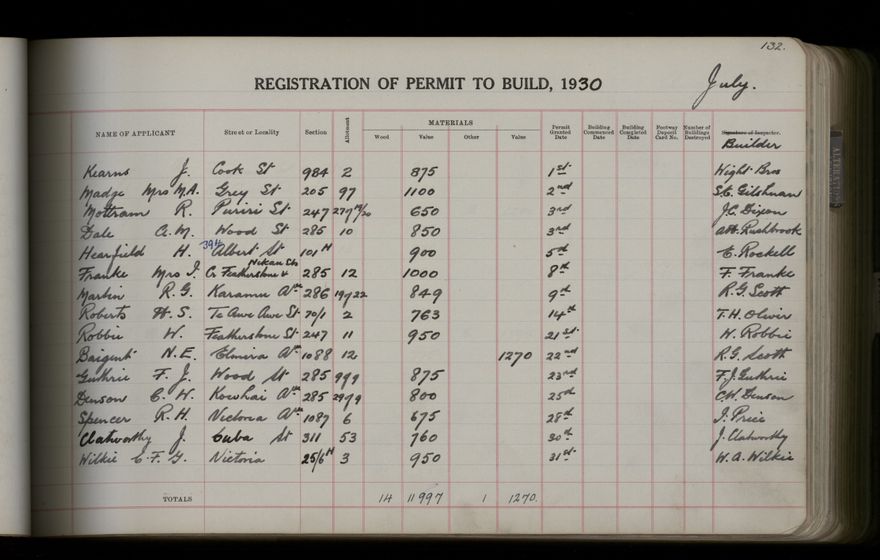 132.
REGISTRATION OF PERMIT TO BUILD, 1930 July.
NAME OF APPLICANT Street or Locality Section Allotment MATERIALS Wood Value Other Value Permit Granted Date Building Commenced Date Building Completed Date Footway Deposit Card No. Number of Buildings Destroyed Signature of Inspector. Builder
Kearns J. Cook St 984 2 875 1st Wight Bros
Madge Mrs M.A. Grey St 205 97 1100 2nd S.C.
Mottram R. Puriri St 247 650 3rd J.C. Dixon
Dale A.M. Wood St 285 10 850 3rd Rushbrook
Hearfield H. 394 Albert St 101H 900 5th E. Rockell
Franke Mrs I. Cr Featherstone & Nikau Sts 285 12 1000 8th F. Franke
Martin R.G. Karamu Ave 286 22 849 9th R.G. Scott
Roberts W.S. Te Awe Awe St 70/1 2 763 14th T.H. Oliver
Robbie W. Featherstone St 247 11 950 21st W. Robbie
Baigent N.E. Elmira Ave 1088 12 1270 22nd R.G. Scott
Guthrie F.J. Wood St 285 875 23rd F.J. Guthrie
Denson C.W. Kowhai Ave 285 800 25th C.W. Denson
Spencer R.H. Victoria Ave 1087 6 675 28th J. Price
Clatworthy J. Cuba St 311 53 760 30th J. Clatworthy
Wilkie E.F.G. Victoria 25/6H 3 950 31st W.A. Wilkie
TOTALS 14 11997 1 1270.